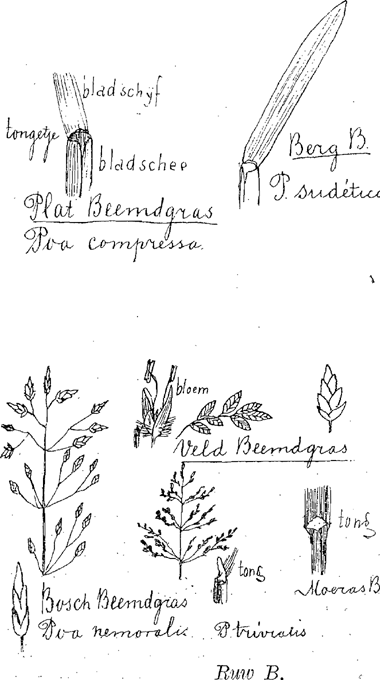 bladschijf
tongetje
bladschee
Plat Beemdgras
Poa compressa.
Berg B.
P. sudética
bloem
Veld Beemdgras
tong
Moeras B
tong
Bosch Beemdgras
Poa nemoralis
P. trivialis
Ruw B.